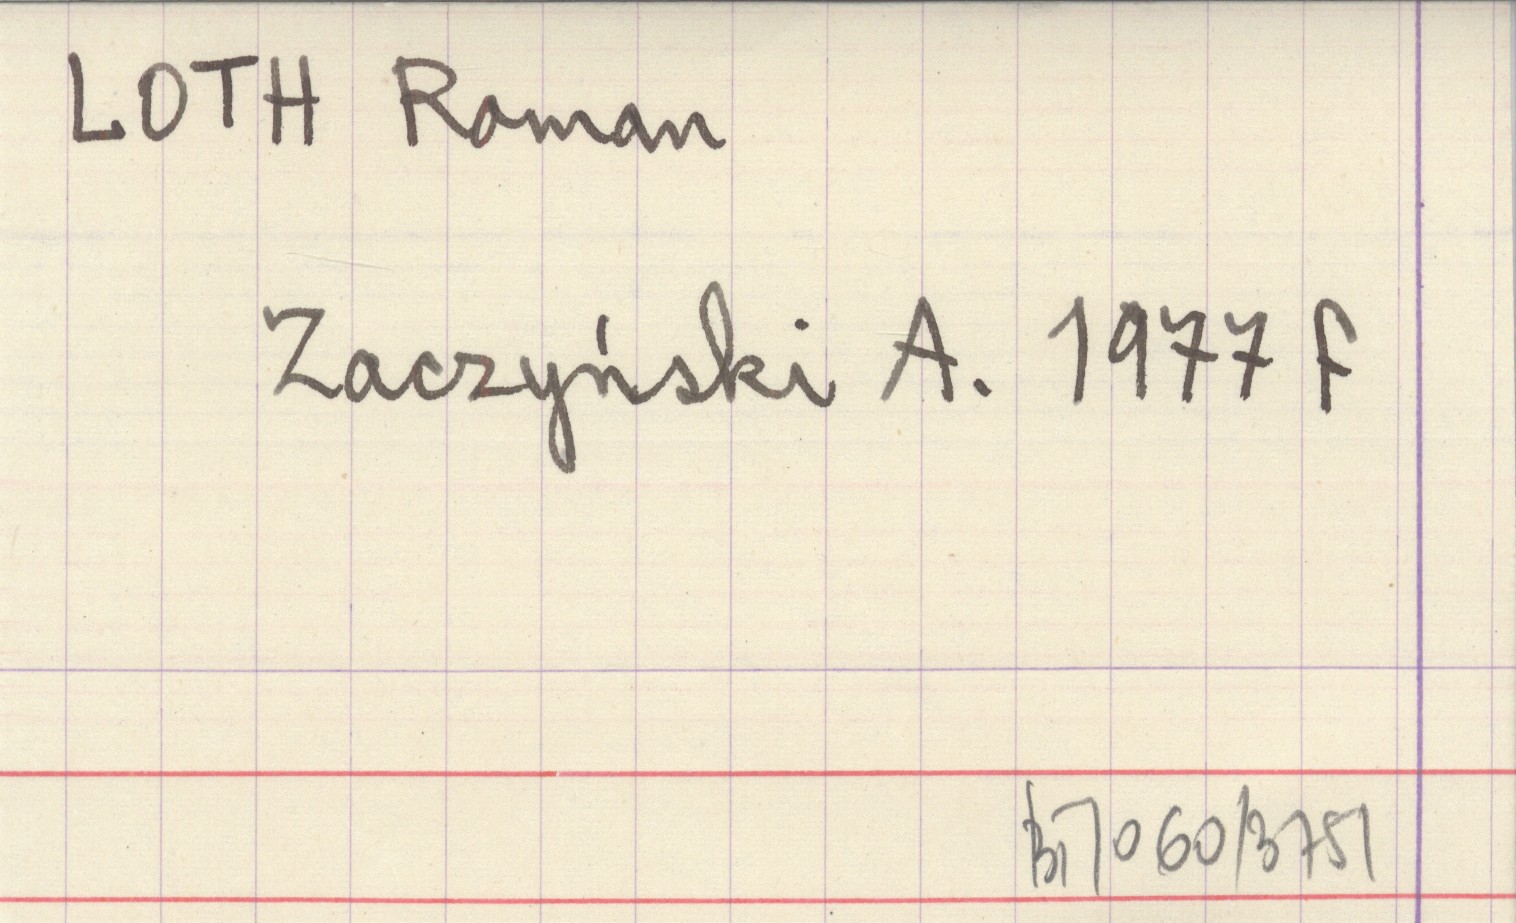 LOTH Roman
Zaczyński A. 1977 f
060/3751